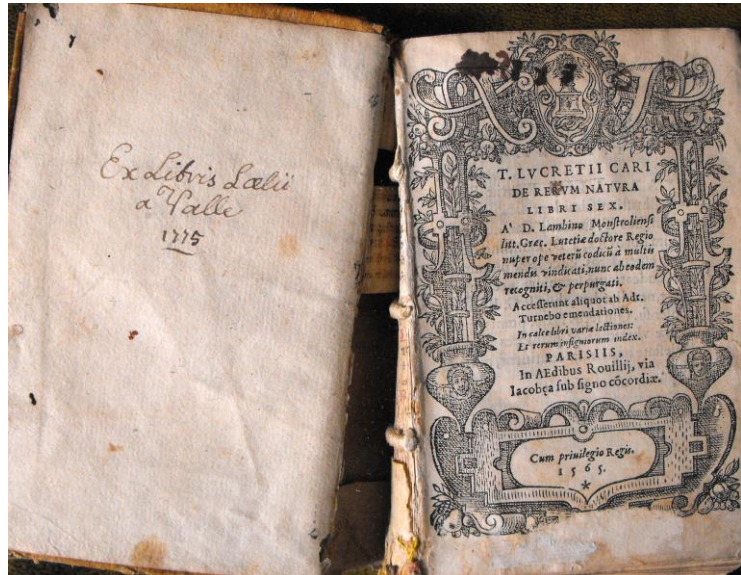 Ex Libris Lælii
a Valle
1775
T. LVCRETII CARI
DE RERVM NATVRA
LIBRI SEX.
A' D. Lambino Monstroliensi
litt. Græc. Lutetiæ doctore Regio
nuper ope veterū codicū à multis
mendis vindicati, nunc ab eodem
recogniti, & perpurgati.
Accesserunt aliquot ab Adr.
Turnebo emendationes.
In calce libri variæ lectiones:
Et rerum insigniorum index.
PARISIIS,
In AEdibus Rouillij, via
Iacobęa sub signo cōcordiæ.
Cum priuilegio Regis.
1565.